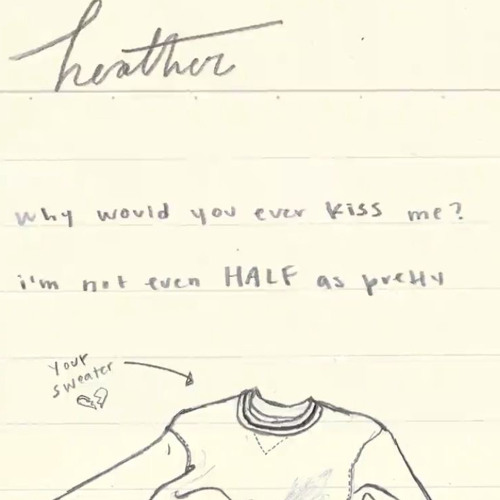 heather
why would you ever kiss me?
i'm not even HALF as pretty
your
sweater